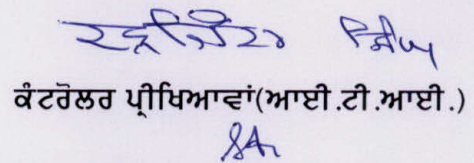 ਸਿੰਘ
ਕੰਟਰੋਲਰ ਪ੍ਰੀਖਿਆਵਾਂ(ਆਈ.ਟੀ.ਆਈ.)